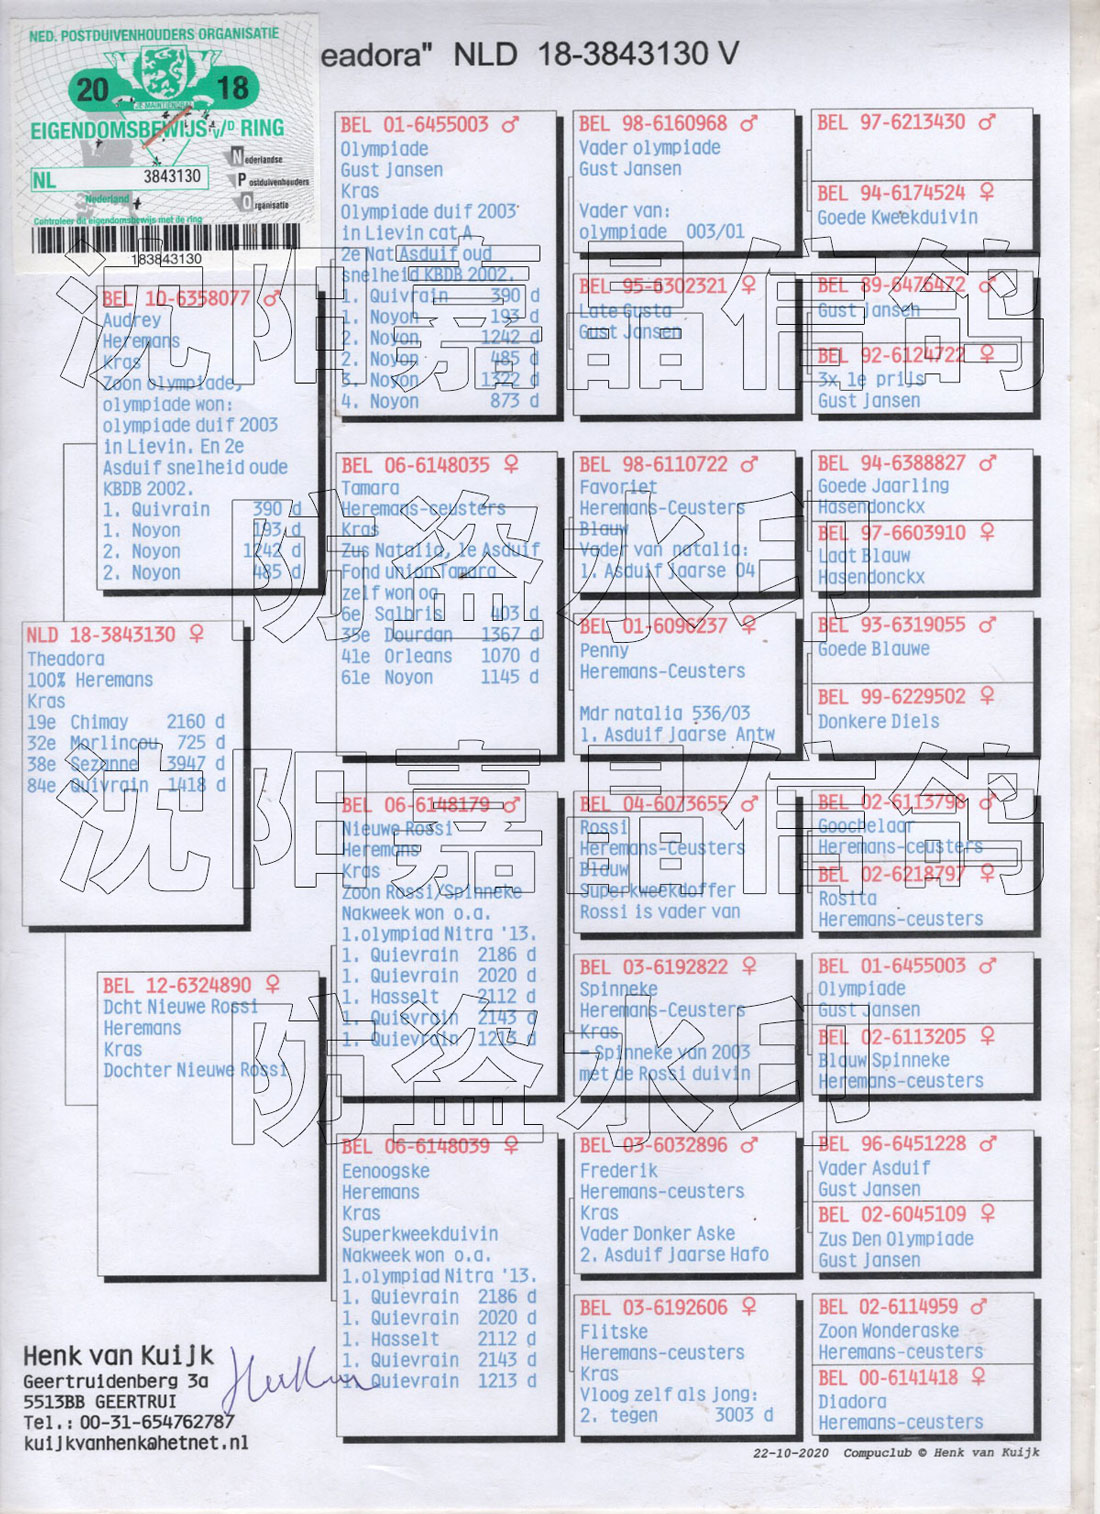 NED. POSTDUIVENHOUDERS ORGANISATIE
20 18
JE MAINTIENDRAI
EIGENDOMSBEWIJS V/D RING
NL 3843130
Nederland
Nederlandse
Postduivenhouders
Organisatie
Controleer dit eigendomsbewijs met de ring
183843130
eadora" NLD 18-3843130 V
NLD 18-3843130 ♀
Theadora
100% Heremans
Kras
19e Chimay 2160 d
32e Morlincou 725 d
38e Sezanne 3947 d
84e Quivrain 1418 d
BEL 10-6358077 ♂
Audrey
Heremans
Kras
Zoon olympiade,
olympiade won:
olympiade duif 2003
in Lievin. En 2e
Asduif snelheid oude
KBDB 2002.
1. Quivrain 390 d
1. Noyon 193 d
2. Noyon 1242 d
2. Noyon 485 d
BEL 12-6324890 ♀
Dcht Nieuwe Rossi
Heremans
Kras
Dochter Nieuwe Rossi
BEL 01-6455003 ♂
Olympiade
Gust Jansen
Kras
Olympiade duif 2003
in Lievin cat A
2e Nat Asduif oud
snelheid KBDB 2002.
1. Quivrain 390 d
1. Noyon 193 d
2. Noyon 1242 d
2. Noyon 485 d
3. Noyon 1322 d
4. Noyon 873 d
BEL 06-6148035 ♀
Tamara
Heremans-ceusters
Kras
Zus Natalia, 1e Asduif
Fond union Tamara
zelf won oa
6e Salbris 403 d
35e Dourdan 1367 d
41e Orleans 1070 d
61e Noyon 1145 d
BEL 06-6148179 ♂
Nieuwe Rossi
Heremans
Kras
Zoon Rossi/Spinneke
Nakweek won o.a.
1.olympiad Nitra '13.
1. Quievrain 2186 d
1. Quievrain 2020 d
1. Hasselt 2112 d
1. Quievrain 2143 d
1. Quievrain 1213 d
BEL 06-6148039 ♀
Eenoogske
Heremans
Kras
Superkweekduivin
Nakweek won o.a.
1.olympiad Nitra '13.
1. Quievrain 2186 d
1. Quievrain 2020 d
1. Hasselt 2112 d
1. Quievrain 2143 d
1. Quievrain 1213 d
BEL 98-6160968 ♂
Vader olympiade
Gust Jansen
Vader van:
olympiade 003/01
BEL 95-6302321 ♀
Late Gusta
Gust Jansen
BEL 98-6110722 ♂
Favoriet
Heremans-Ceusters
Blauw
Vader van natalia:
1. Asduif jaarse 04
BEL 01-6096237 ♀
Penny
Heremans-Ceusters
Mdr natalia 536/03
1. Asduif Jaarse Antw
BEL 04-6073655 ♂
Rossi
Heremans-Ceusters
Blauw
Superkweekdoffer
Rossi is vader van
BEL 03-6192822 ♀
Spinneke
Heremans-Ceusters
Kras
- Spinneke van 2003
met de Rossi duivin
BEL 03-6032896 ♂
Frederik
Heremans-ceusters
Kras
Vader Donker Aske
2. Asduif Jaarse Hafo
BEL 03-6192606 ♀
Flitske
Heremans-ceusters
Kras
Vloog zelf als Jong:
2. tegen 3003 d
BEL 97-6213430 ♂
BEL 94-6174524 ♀
Goede Kweekduivin
BEL 89-6476472 ♂
Gust Jansen
BEL 92-6124722 ♀
3x 1e prijs
Gust Jansen
BEL 94-6388827 ♂
Goede Jaarling
Hasendonckx
BEL 97-6603910 ♀
Laat Blauw
Hasendonckx
BEL 93-6319055 ♂
Goede Blauwe
BEL 99-6229502 ♀
Donkere Diels
BEL 02-6113798 ♂
Goochelaar
Heremans-ceusters
BEL 02-6218797 ♀
Rosita
Heremans-ceusters
BEL 01-6455003 ♂
Olympiade
Gust Jansen
BEL 02-6113205 ♀
Blauw Spinneke
Heremans-ceusters
BEL 96-6451228 ♂
Vader Asduif
Gust Jansen
BEL 02-6045109 ♀
Zus Den Olympiade
Gust Jansen
BEL 02-6114959 ♂
Zoon Wonderaske
Heremans-ceusters
BEL 00-6141418 ♀
Diadora
Heremans-ceusters
沈阳嘉晶信鸽
防盗水印
沈阳嘉晶信鸽
防盗水印
Henk van Kuijk
Geertruidenberg 3a
5513BB GEERTRUI
Tel.: 00-31-654762787
kuijkvanhenk@hetnet.nl
22-10-2020 Compuclub © Henk van Kuijk